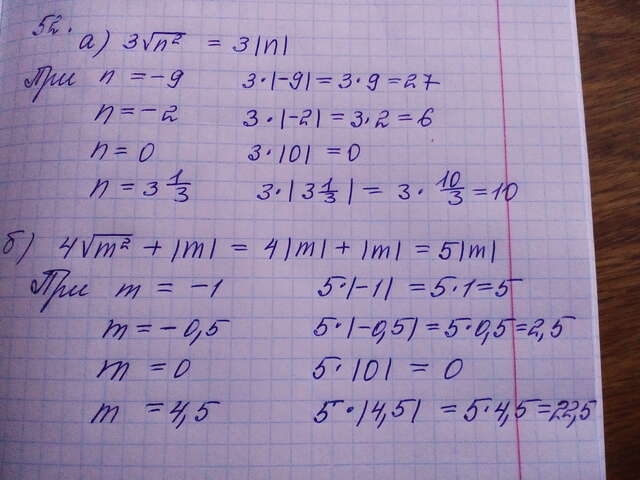 52.
а) 3√n² = 3|n|
При n = -9 3·|-9| = 3·9 = 27
n = -2 3·|-2| = 3·2 = 6
n = 0 3·|0| = 0
n = 3 1/3 3·|3 1/3| = 3·10/3 = 10
б) 4√m² + |m| = 4|m| + |m| = 5|m|
При m = -1 5·|-1| = 5·1 = 5
m = -0,5 5·|-0,5| = 5·0,5 = 2,5
m = 0 5·|0| = 0
m = 4,5 5·|4,5| = 5·4,5 = 22,5